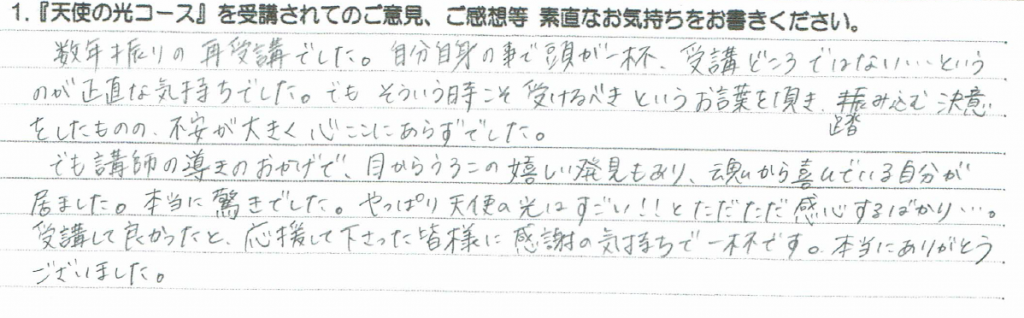 1.『天使の光コース』を受講されてのご意見、ご感想等 素直なお気持ちをお書きください。
数年振りの再受講でした。自分自身の事で頭が一杯、受講どころではない…という
のが正直な気持ちでした。でもそういう時こそ受けるべきというお言葉を頂き、踏み込む決意
をしたものの、不安が大きく心ここにあらずでした。
でも講師の導きのおかげで、目からうろこの嬉しい発見もあり、魂から喜んでいる自分が
居ました。本当に驚きでした。やっぱり天使の光はすごい!!とただただ感心するばかり…。
受講して良かったと、応援して下さった皆様に感謝の気持ちで一杯です。本当にありがとう
ございました。